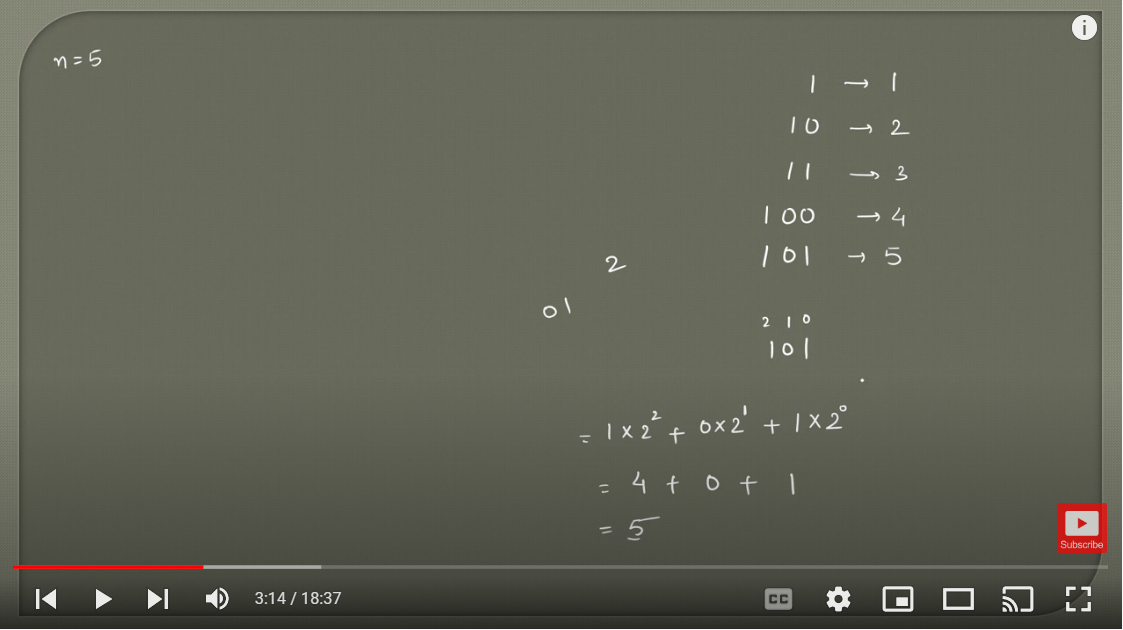 n = 5
1 → 1
10 → 2
11 → 3
100 → 4
101 → 5
2
01
2 1 0
101
= 1 × 2² + 0 × 2¹ + 1 × 2⁰
= 4 + 0 + 1
= 5
Subscribe
3:14 / 18:37
CC